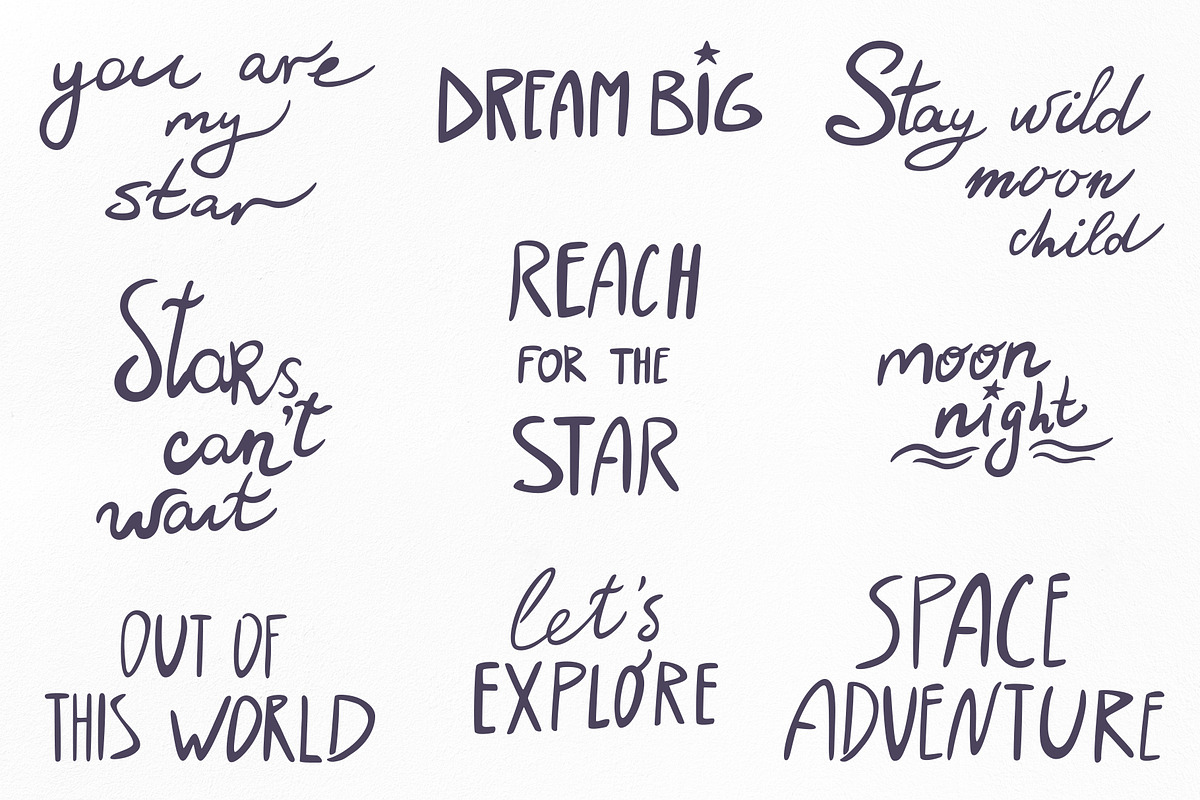 you are
my
star
DREAM BiG
Stay wild
moon
child
StaRs
can't
wait
REACH
FOR THE
STAR
moon
night
OUT OF
THIS WORLD
let's
EXPLORE
SPACE
ADVENTURE